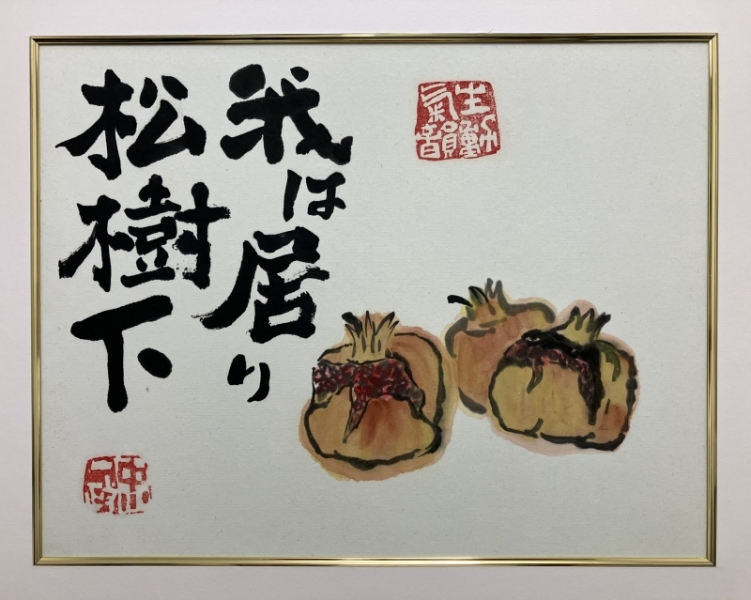 我は居り
松樹下
生動
氣韻